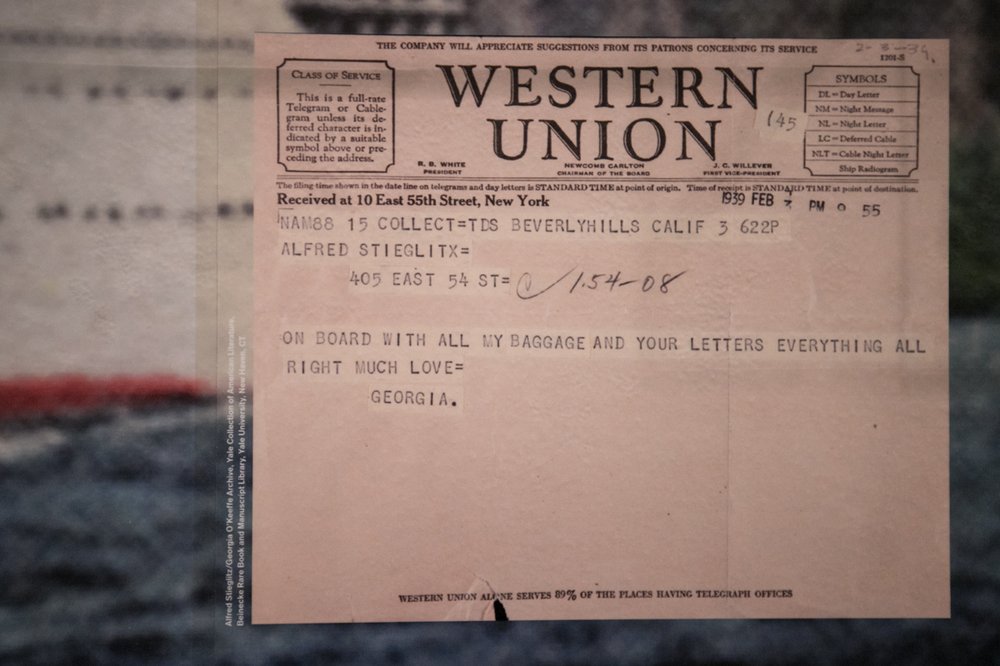 THE COMPANY WILL APPRECIATE SUGGESTIONS FROM ITS PATRONS CONCERNING ITS SERVICE
2-3-39.
1201-S
CLASS OF SERVICE
This is a full-rate
Telegram or Cable-
gram unless its de-
ferred character is in-
dicated by a suitable
symbol above or pre-
ceding the address.
WESTERN
UNION
145
R. B. WHITE
PRESIDENT
NEWCOMB CARLTON
CHAIRMAN OF THE BOARD
J. C. WILLEVER
FIRST VICE-PRESIDENT
SYMBOLS
DL = Day Letter
NM = Night Message
NL = Night Letter
LC = Deferred Cable
NLT = Cable Night Letter
Ship Radiogram
The filing time shown in the date line on telegrams and day letters is STANDARD TIME at point of origin. Time of receipt is STANDARD TIME at point of destination.
Received at 10 East 55th Street, New York
1939 FEB 3 PM 9 55
NAM88 15 COLLECT=TDS BEVERLYHILLS CALIF 3 622P
ALFRED STIEGLITX=
405 EAST 54 ST= 1.54-08
ON BOARD WITH ALL MY BAGGAGE AND YOUR LETTERS EVERYTHING ALL
RIGHT MUCH LOVE=
GEORGIA.
WESTERN UNION ALONE SERVES 89% OF THE PLACES HAVING TELEGRAPH OFFICES
Alfred Stieglitz/Georgia O'Keeffe Archive, Yale Collection of American Literature,
Beinecke Rare Book and Manuscript Library, Yale University, New Haven, CT